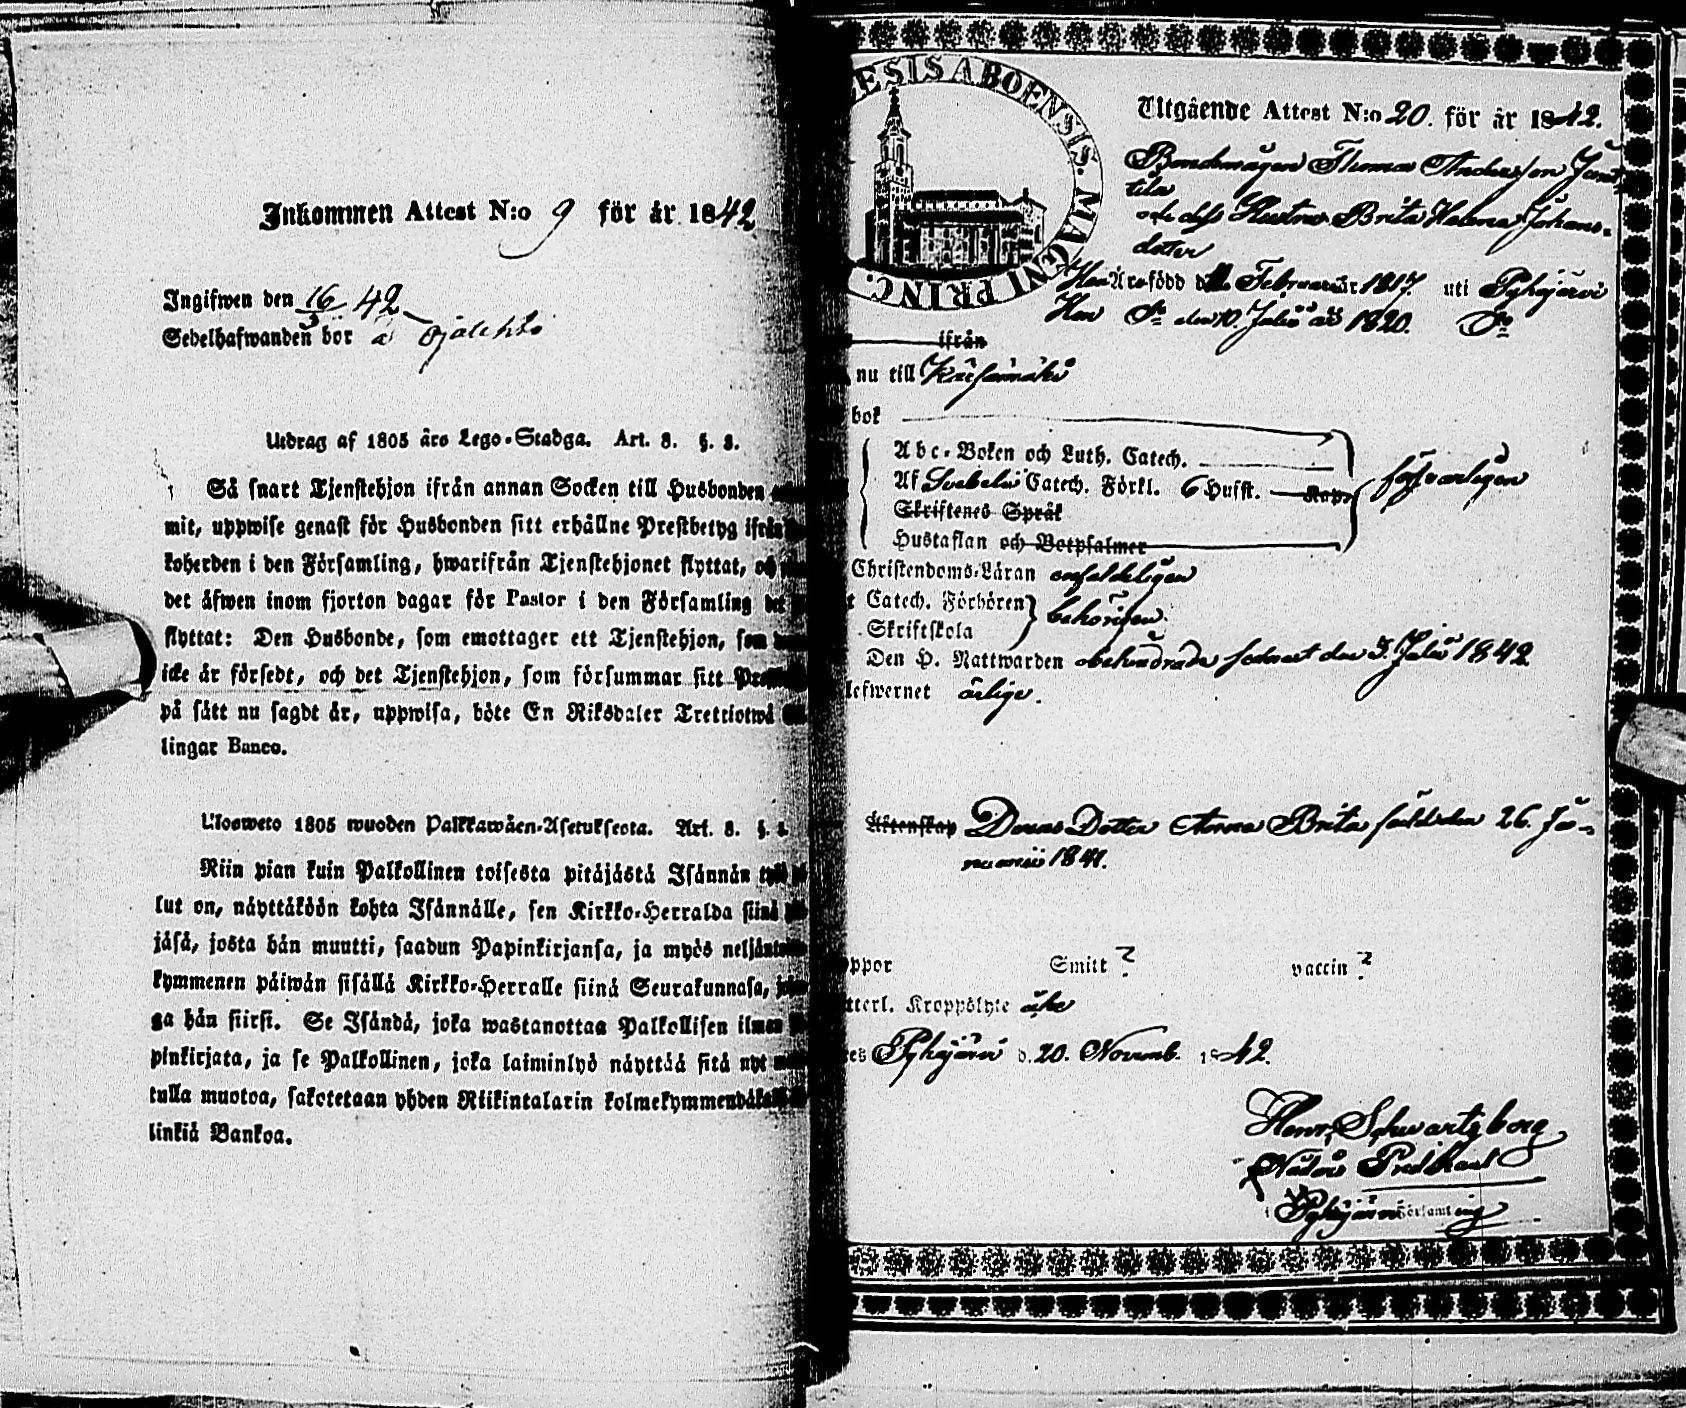 Inkommen Attest N:o 9 för år 1842
Ingifwen den 16/3 42
Sedelhafwanden bor å Ojalehto
Utdrag af 1805 års Lego-Stadga. Art. 3. §. 3.
Så snart Tjenstehjon ifrån annan Socken till Husbonden
mit, uppwise genast för Husbonden sitt erhållne Prestbetyg ifrån
koherden i den Församling, hwarifrån Tjenstehjonet flyttat, och
det äfwen inom fjorton dagar för Pastor i den Församling det
flyttat: Den Husbonde, som emottager ett Tjenstehjon, som
icke är försedt, och det Tjenstehjon, som försummar sitt
på sätt nu sagdt är, uppwisa, böte En Riksdaler Trettiotwå
lingar Banco.
Ulosweto 1805 wuoden Palkkawäen-Asetuksesta. Art. 3. §. 3.
Niin pian kuin Palkollinen toisesta pitäjästä Isännän tykö
lut on, näyttäköön kohta Isännälle, sen Kirkko-Herralda siinä
jäsä, josta hän muutti, saadun Papinkirjansa, ja myös neljäntoista
kymmenen päiwän sisällä Kirkko-Herralle siinä Seurakunnasa,
ga hän siirsi. Se Isändä, joka wastanottaa Palkollisen ilman
pinkirjata, ja se Palkollinen, joka laiminlyö näyttää sitä nyt
tulla muotoa, sakotetaan yhden Riikintalarin kolmekymmendäkaksi
linkiä Bankoa.
ESIS ABOENSIS. MAGNI PRINC.
Utgående Attest N:o 20. för år 1842.
Bondemågen Thomas Andersson Jant-
tila
och dess Hustru Brita Helena Johans-
dotter
Han Är född d. Februarii år 1817. uti Pyhäjärvi
Hon Do den 10. Julii år 1820. Do
ifrån
nu till Kärsämäki
bok
Abc-Boken och Luth. Catech.
Af Svebelii Catech. Förkl. 6 Hufst.
försvarligen
Skriftenes Språk
Hustaflan och Botpsalmer
Christendoms-Läran enfaldeligen
Catech. Förhören
behörigen.
Skriftskola
Den H. Nattwarden obehindrade sednast den 3. Julii 1842.
lefwernet ärlige.
Äktenskap Deras Dotter Anna Brita född den 26. Ja-
nuarii 1841.
oppor Smitt ? vaccin ?
tterl. Kroppslyte äha
Pyhäjärvi d. 20. Novemb. 1842.
Henr. Schwartzberg
i Pyhäjärvi Församling